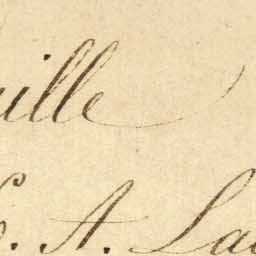 ille
. A. La